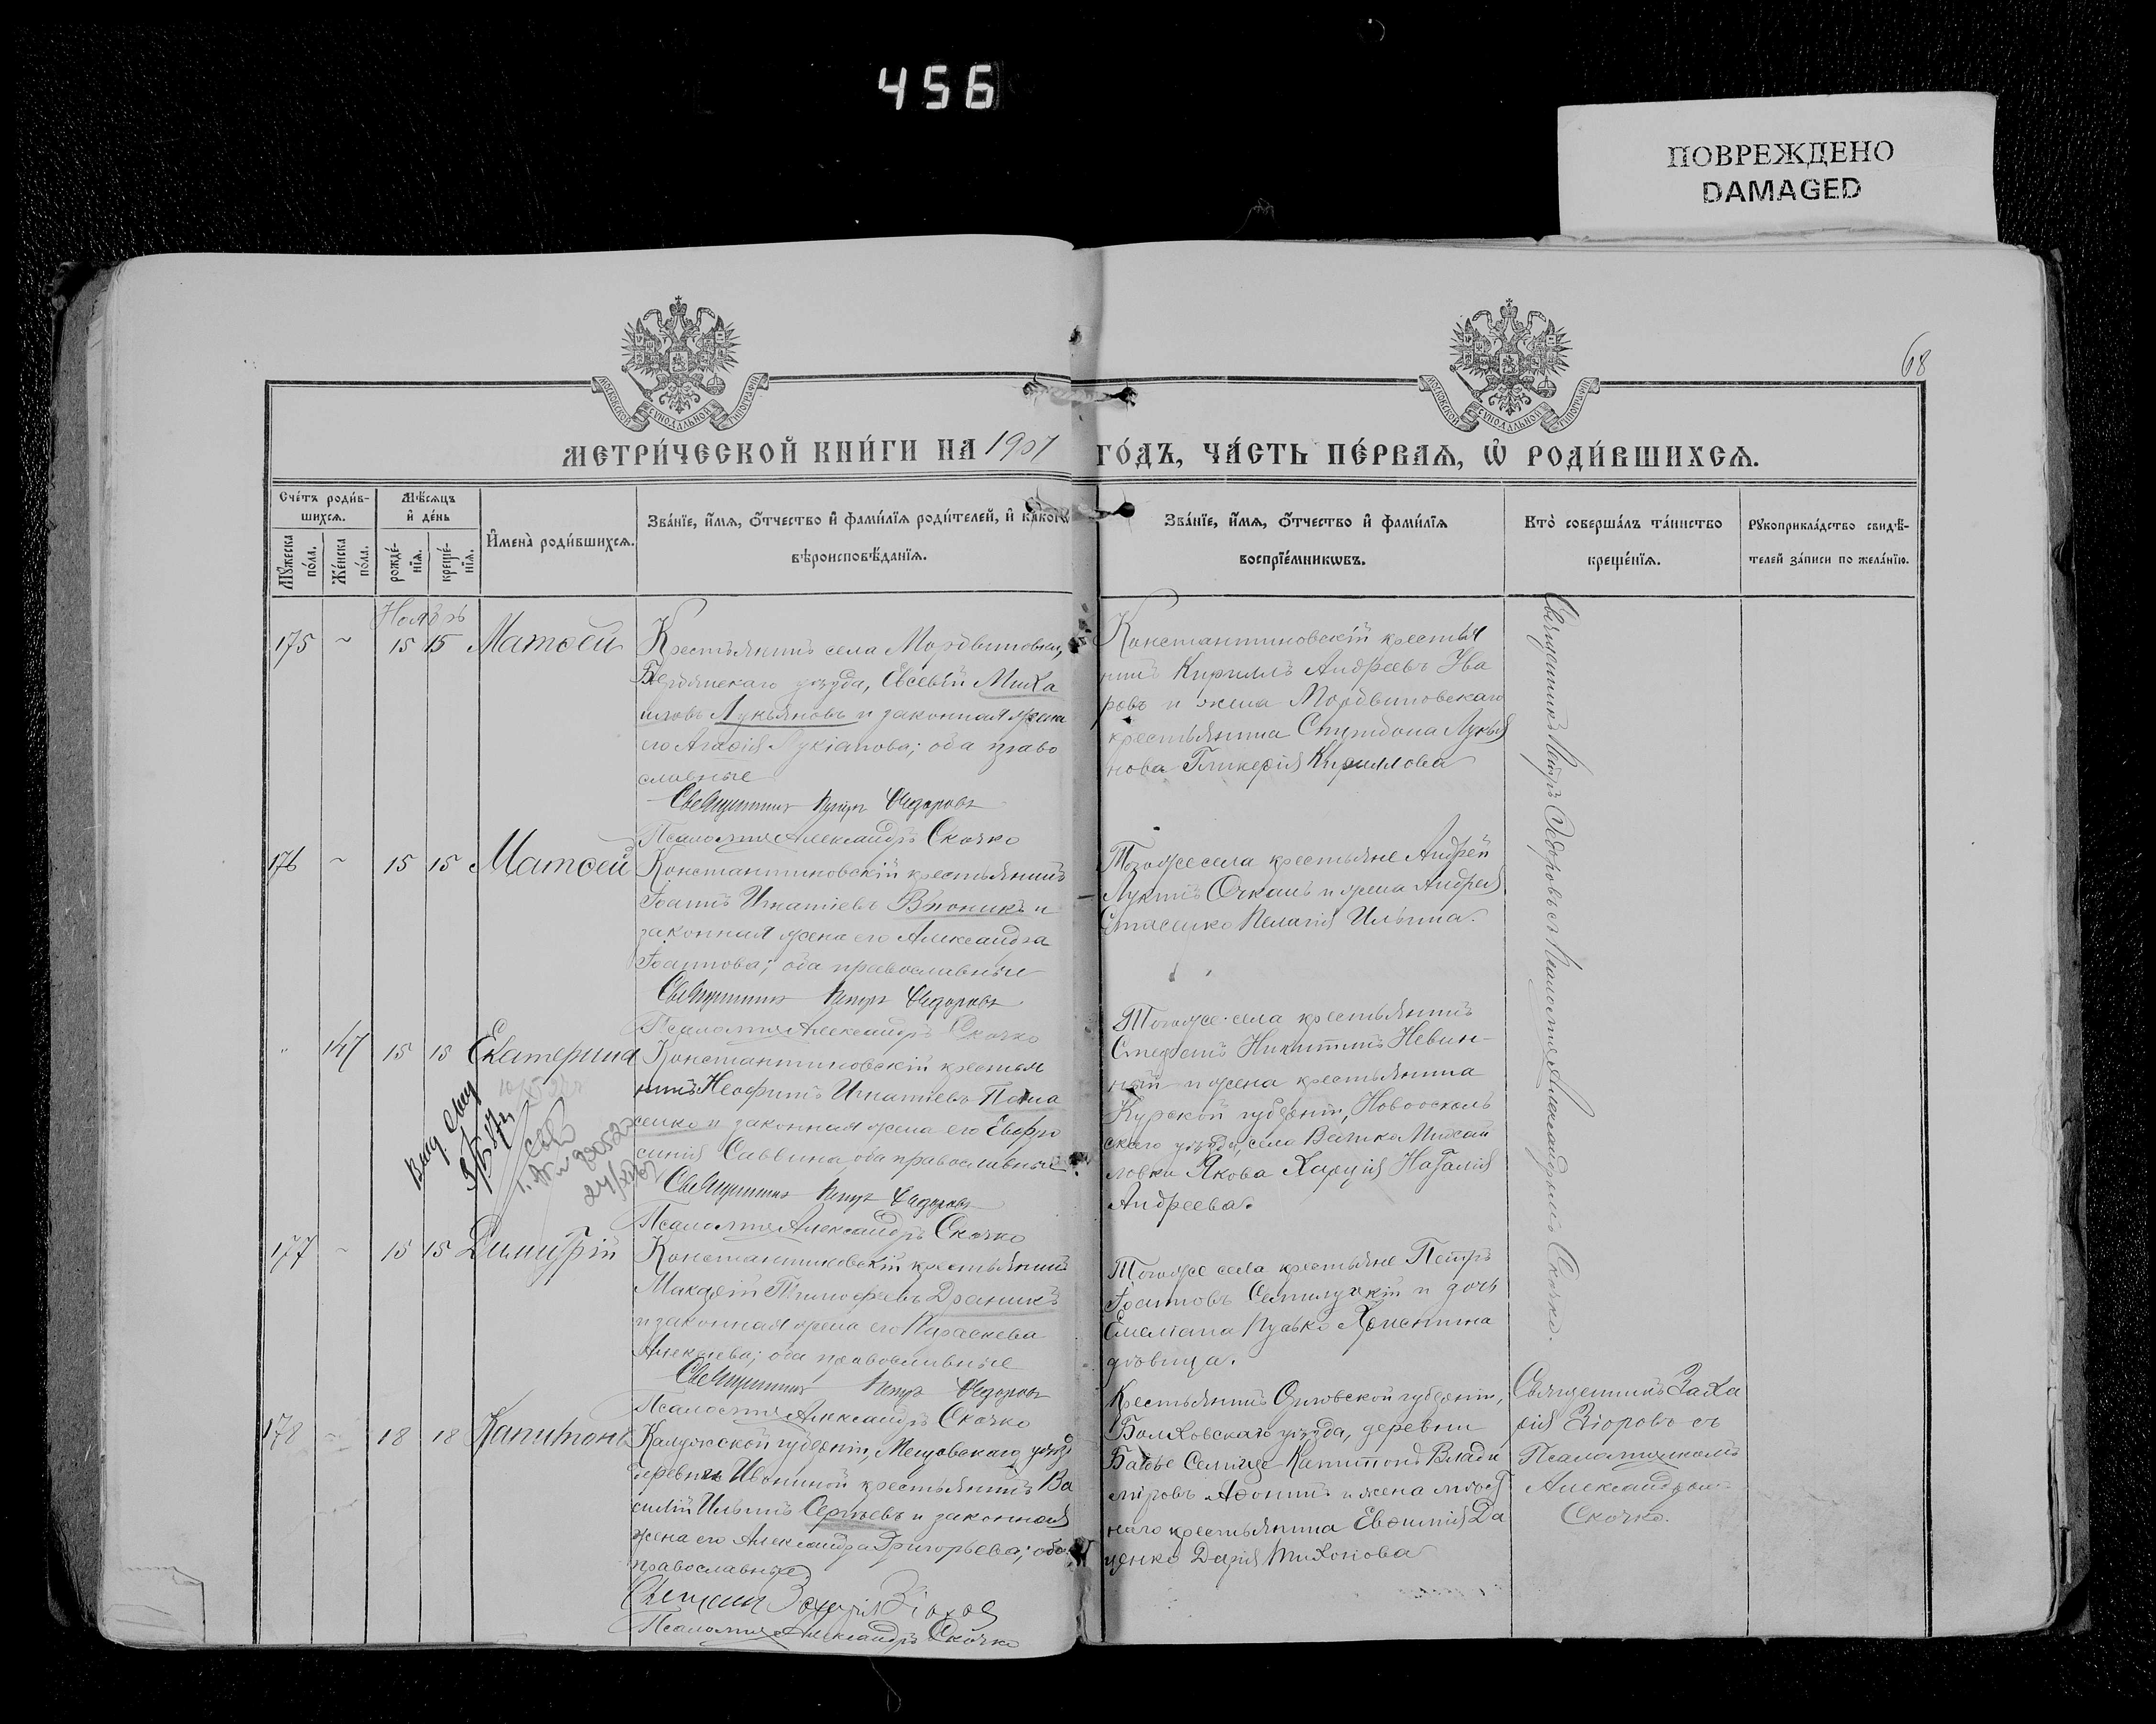 456
ПОВРЕЖДЕНО
DAMAGED
68
МОСКОВСКОЙ СѴНОДАЛЬНОЙ ТИПОГРАФІИ
МОСКОВСКОЙ СѴНОДАЛЬНОЙ ТИПОГРАФІИ
МЕТРИ́ЧЕСКОЙ КНИ́ГИ НА 1907 ГО́ДЪ, ЧА́СТЬ ПЕ́РВАѦ, Ѡ҆ РОДИ́ВШИХСѦ.
Сче́тъ роди́в-
шихсѧ.
Мꙋ́жеска по́ла.
Же́нска по́ла.
Мѣ́сѧцъ
и҆ де́нь
рожде́-нїѧ.
креще́-нїѧ.
И҆мена̀ роди́вшихсѧ.
Зва́нїе, и҆́мѧ, ѻ҆́тчество и҆ фами́лїѧ роди́телей, и҆ како́гѡ
вѣроисповѣ́данїѧ.
Зва́нїе, и҆́мѧ, ѻ҆́тчество и҆ фами́лїѧ
воспрїе́мникѡвъ.
Кто̀ соверша́лъ та́инство
креще́нїѧ.
Рꙋкоприкла́дство свидѣ́-
телей за́писи по жела́нїю.
Ноябрь
175 15 15 Матѳей
Крестьянинъ села Мордвиновки,
Бердянскаго уѣзда, Евсевій Миха
иловъ Лукьяновъ и законная жена
его Агаѳія Лукіанова; оба право
славные
Священникъ Петръ Ѳедоровъ
Псаломщ Александръ Скочко
Константиновскій крестья
нинъ Кириллъ Андреевъ Ува
ровъ и жена Мордвиновскаго
крестьянина Спиридона Лукья
нова Гликерія Кириллова
Священникъ Петръ Ѳедоровъ съ Псаломщ Александромъ Скочко.
176 15 15 Матѳей
Константиновскій крестьянинъ
Іоаннъ Игнатіевъ Вьюникъ и
законная жена его Александра
Іоаннова; оба православные
Священникъ Петръ Ѳедоровъ
Псаломщ Александръ Скочко
Тогоже села крестьяне Андрей
Лукинъ Очканъ и жена Андрея
Стасенко Пелагія Ильина.
147 15 15 Екатерина
Константиновскій крестья
нинъ Неофитъ Игнатіевъ Пана
сенко и законная жена его Евфро
синія Саввина оба православные
Священникъ Петръ Ѳедоровъ
Псаломщ Александръ Скочко
Тогоже села крестьянинъ
Стефанъ Никитинъ Невин-
ный и жена крестьянина
Курской губерніи, Новооскол
скаго уѣзда, села Велико Михай
ловки Якова Наталія
Андреева.
177 15 15 Димитрій
Константиновскій крестьянинъ
Макарій Тимоѳеевъ Драникъ
и законная жена его Параскева
Алексіева; оба православные
Священникъ Петръ Ѳедоровъ
Псаломщ Александръ Скочко
Тогоже села крестьяне Петръ
Іоанновъ и дочь
Емеліана Пузько Христина
дѣвица.
178 18 18 Капитонъ
Калужской губерніи, Мещовскаго уѣзд
деревни Ивониной крестьянинъ Ва
силій Ильинъ Сергѣевъ и законная
жена его Александра Григорьева; оба
православные
Захарія
Псаломщ Александръ Скочко
Крестьянинъ Орловской губерніи,
Болховскаго уѣзда, деревни
Капитонъ Влади
міровъ Аѳонинъ и жена мѣст
наго крестьянина Евѳимія Да
ценко Дарія Тихонова
Священникъ Заха
рія съ
Псаломщикомъ
Александромъ
Скочко.